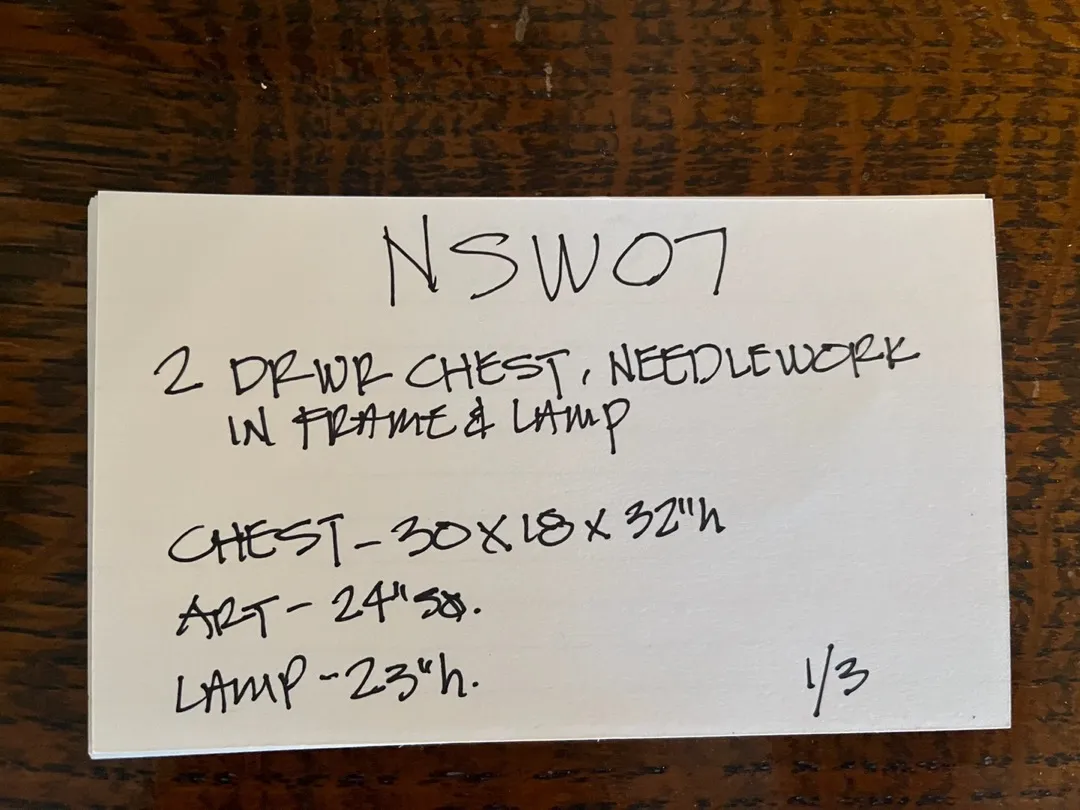 NSW07
2 DRWR CHEST, NEEDLEWORK
IN FRAME & LAMP
CHEST - 30 X 18 X 32"h
ART - 24" SQ.
LAMP - 23"h.
1/3